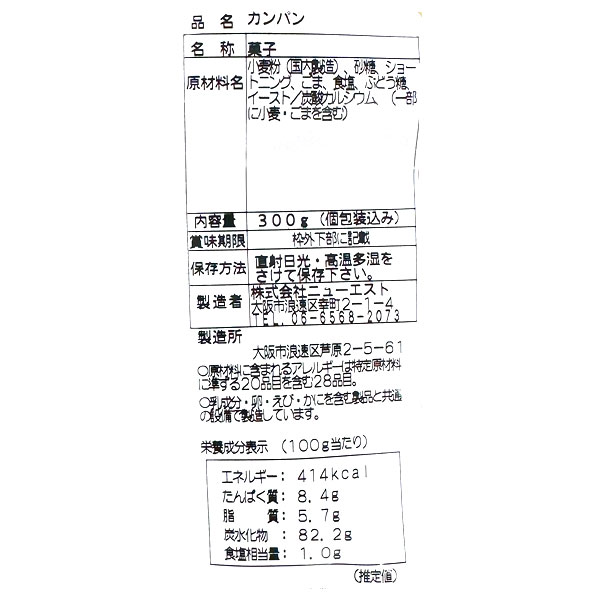 品 名 カンパン
名 称 菓子
原材料名 小麦粉（国内製造）、砂糖、ショー
トニング、ごま、食塩、ぶどう糖、
イースト／炭酸カルシウム、（一部
に小麦・ごまを含む）
内容量 300g（個包装込み）
賞味期限 枠外下部に記載
保存方法 直射日光・高温多湿を
さけて保存下さい。
製造者 株式会社ニューエスト
大阪市浪速区幸町2-1-4
TEL.06-6568-2073
製造所
大阪市浪速区芦原2-5-61
○原材料に含まれるアレルギーは特定原材料
に準ずる20品目を含む28品目。
○乳成分・卵・えび・かにを含む製品と共通
の設備で製造しています。
栄養成分表示（100g当たり）
エネルギー：414kcal
たんぱく質：8.4g
脂 質：5.7g
炭水化物：82.2g
食塩相当量：1.0g
（推定値）